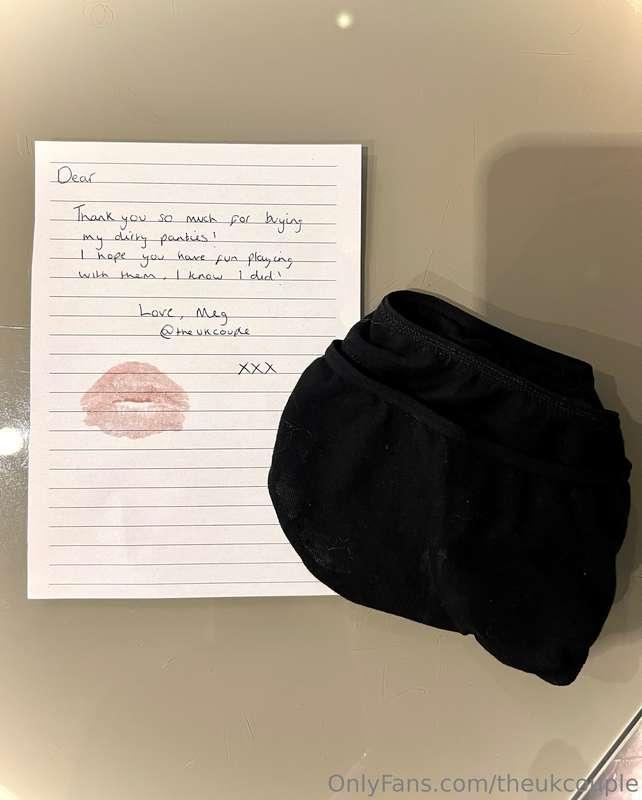 Dear
Thank you so much for buying
my dirty panties!
I hope you have fun playing
with them, I know I did!
Love, Meg
@theukcouple
XXX
OnlyFans.com/theukcouple